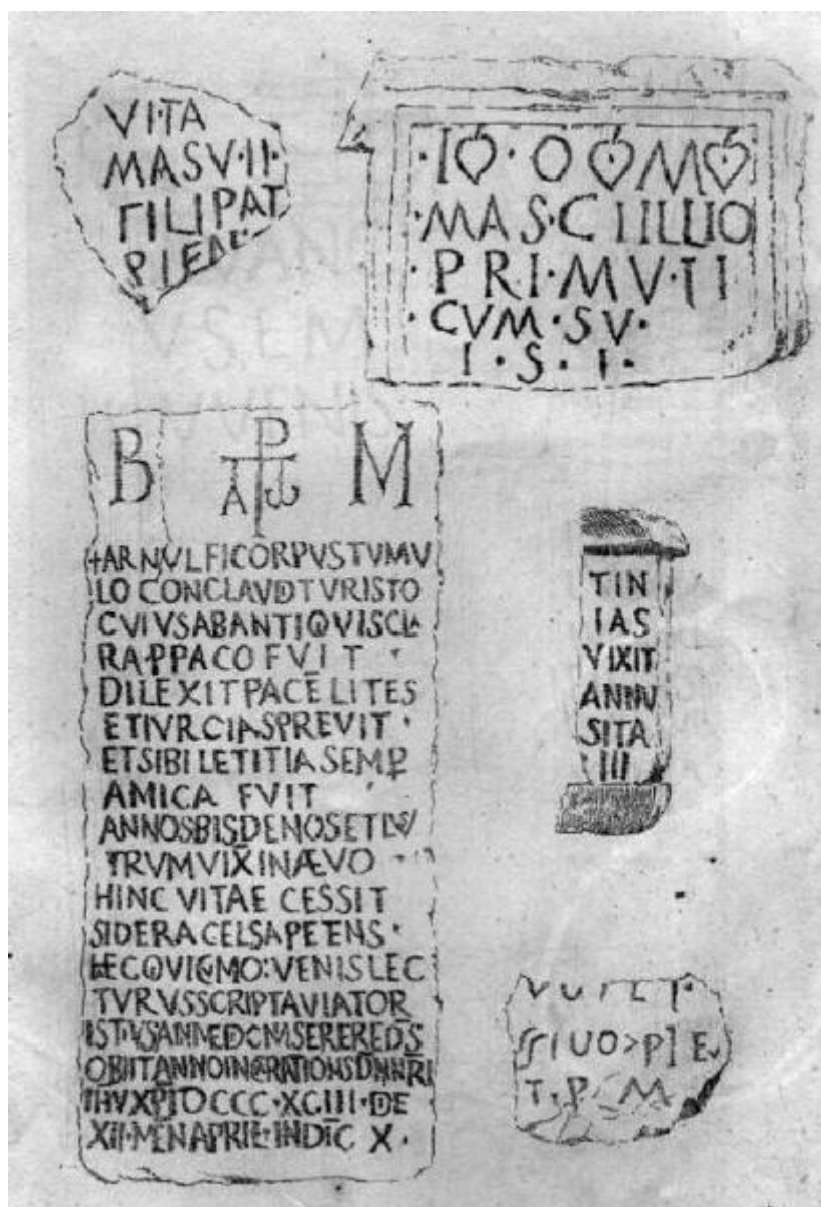 VI·TA
MASV·II·
FILI PAT
PIEN
·I O·O O M O
·MAS·CIILLIO
·PRI·MV·TI
·CVM·SV·
I·S·I·
B M
+ARNVLFI CORPVS TVMV
LO CONCLAVDTVR ISTO
CVIVS AB ANTIQVIS CLA
RA PPACO FVIT
DILEXIT PACĒ LITES
ET IVRGIA SPREVIT·
ET SIBI LETITIA SEMP
AMICA FVIT
ANNOS BIS DENOS ET
TRVM VIX IN ÆVO
HINC VITAE CESSIT
SIDERA CELSA PETENS·
HEC QVI MO: VENIS LEC
TVRVS SCRIPTA VIATOR
ISTIVS ANIME DC MISERERE DS
OBIIT ANNO INCRATIONS DNI NRI
IHV XPI DCCC·XCIII·DE
XII·MEN APRIL·INDIC X·
TIN
IAS
VIXIT
ANNV
SITA
III
T·P M